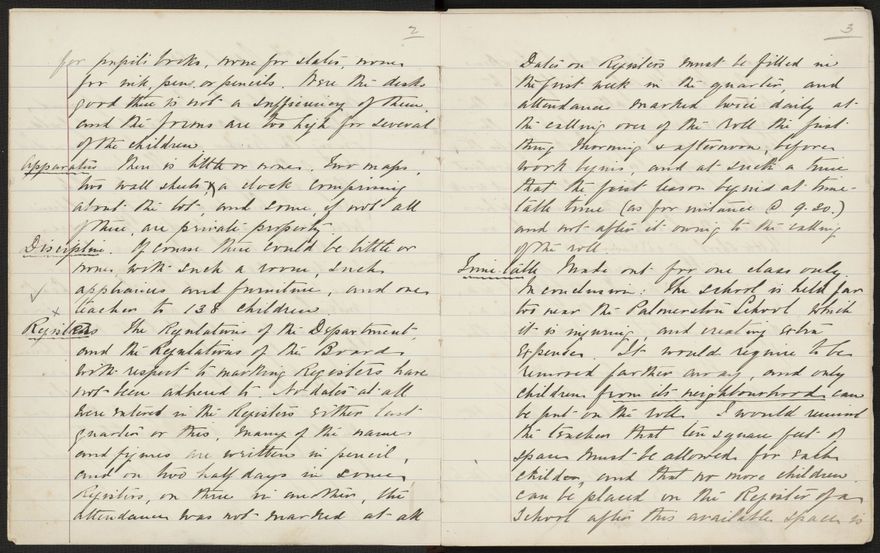 2
for pupils books, none for slates, none
for ink, pen, or pencils. Were the desks
good there is not a sufficiency of them,
and the forms are too high for several
of the children.
Apparatus There is little or none. Two maps,
two wall sheets & a clock comprising
about the lot, and some, if not all
of these, are private property
Discipline. Of course there could be little or
none with such a room, such
appliances and furniture, and one
teacher to 138 children
Registers The Regulations of the Department,
and the Regulations of the Board
with respect to marking Registers have
not been adhered to. No dates at all
were entered in the Registers either last
quarter or this, many of the names
and figures are written in pencil,
and on two half days in some
Registers, on three in another, the
attendance was not marked at all
3
Dates on Registers must be filled in
the first week in the quarter, and
attendances marked twice daily at
the calling over of the Roll the first
thing morning & afternoon, before
work begins, and at such a time
that the first lesson begins at time-
table time (as for instance @ 9.30.)
and not after it owing to the calling
of the roll.
Time-table Made out for one class only.
In conclusion: The School is held far
too near the Palmerston School which
it is injuring, and creating extra
expenses. It would require to be
removed farther away, and only
children from its neighbourhood can
be put on the Rolls. I would remind
the teachers that ten square feet of
space must be allowed for each
child, and that no more children
can be placed on the Register of a
School after this available space is